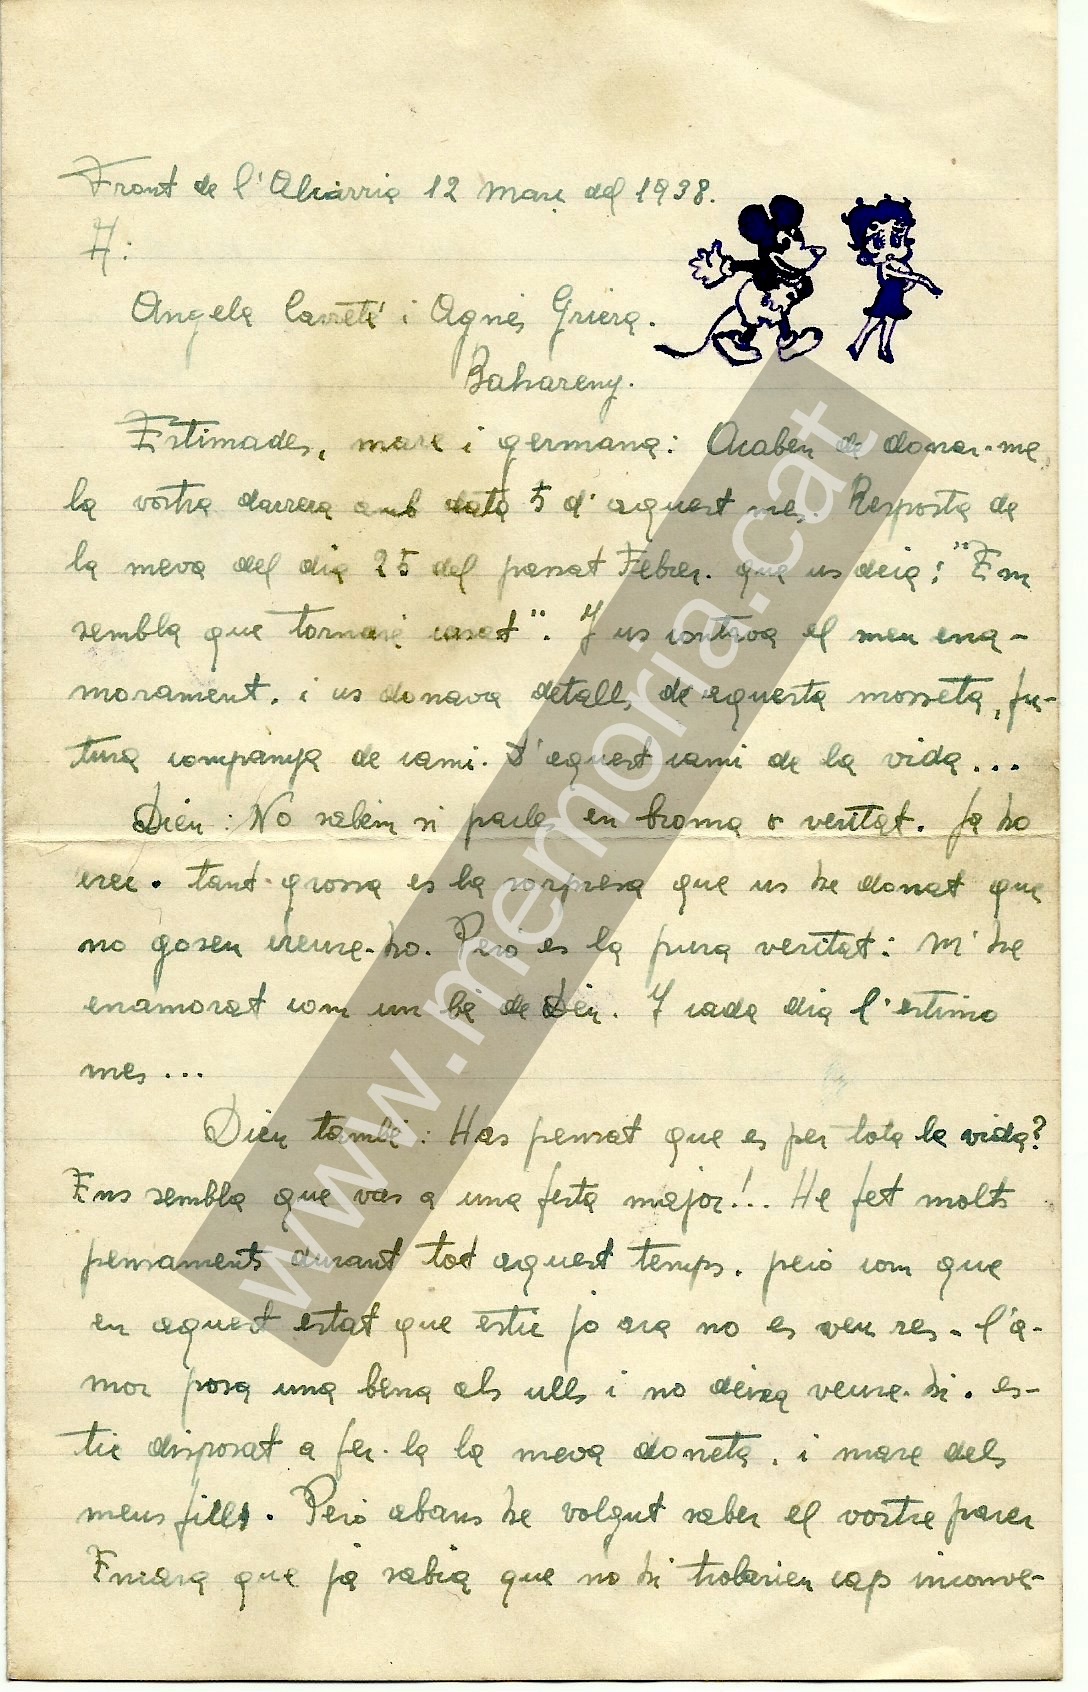 Front de l'Alcarria 12 Març del 1938.
A:
Angela Carreté i Agnés Griera.
Balsareny.
Estimades, mare i germana: Acaben de donar-me
la vostra darrera amb data 5 d'aquest mes. Resposta de
la meva del dia 25 del passat Febrer. que us deia: "Em
sembla que tornaré casat". I us contava el meu ena-
morament. i us donava detalls de aquesta mosseta, fu-
tura companya de cami. D'aquest cami de la vida...
Dieu: No sabem si parla en broma o veritat. Ja ho
crec. tant grossa es la sorpresa que us he donat que
no goseu creure-ho. Peró es la pura veritat: M'he
enamorat com un be de Déu. I cada dia l'estimo
mes...
Dieu també: Has pensat que es per tota la vida?
Ens sembla que vas a una festa major!.. He fet molts
pensaments durant tot aquest temps. peró com que
en aquest estat que estic jo ara no es veu res. l'a-
mor posa una bena als ulls i no deixa veure-hi. es-
tic disposat a fer-la la meva doneta. i mare dels
meus fills. Peró abans he volgut saber el vostre parer
Encara que ja sabia que no hi trobarieu cap inconve-
www.memoria.cat